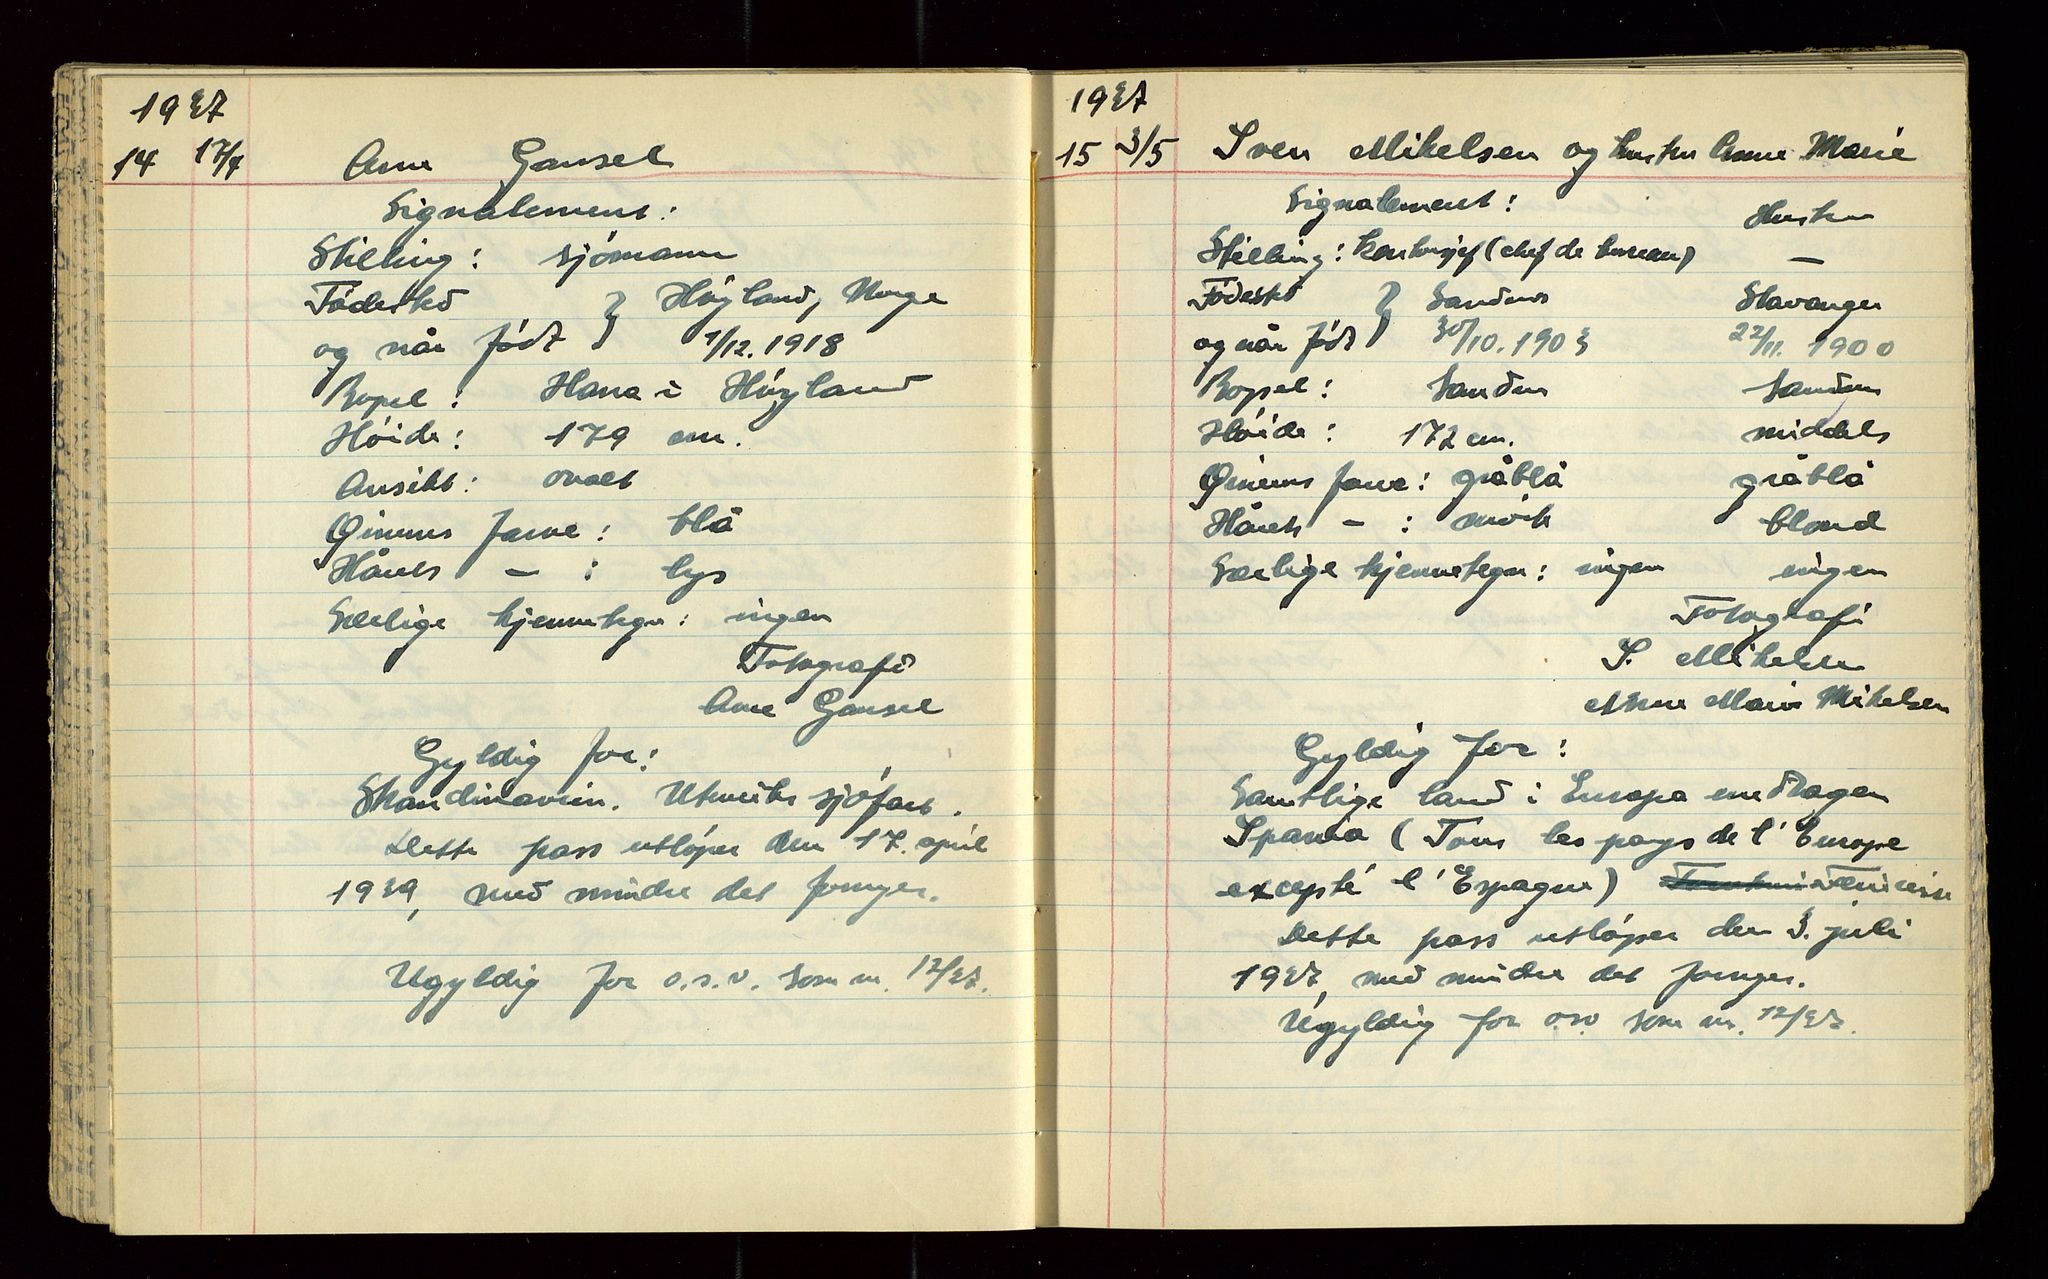 1937
14 17/4 Arne Gausel
Signalement:
Stilling: sjömann
Födested } Höyland, Norge
og når född } 1/12. 1918
Bopel: Hana i Höyland
Höide: 179 cm.
Ansikt: ovalt
Øinenes farve: blå
Hårets – : lys
Særlige kjennetegn: ingen
Fotografi
Arne Gausel
Gyldig for:
Skandinavien. Utenriks sjöfart.
Dette pass utlöper den 17. april
1939, med mindre det fornyes.
Ugyldig for o.s.v. som nr. 12/37.
1937
15 3/5 Sven Mikelsen og hustru Anne Marie
Signalement: Hustru
Stilling: kontorsjef (chef de bureau) –
Födested } Sandnes Stavanger
og når född } 30/10. 1903 22/11. 1900
Bopel: Sandnes Sandnes
Höide: 172 cm. middels
Øinenes farve: gråblå gråblå
Hårets – : mörk blond
Særlige kjennetegn: ingen ingen
Fotografi
S. Mikelsen
Anne Marie Mikelsen
Gyldig for:
Samtlige land i Europa undtagen
Spania (Tous les pays de l'Europe
excepté l'Espagne)
Dette pass utlöper den 3. juli
1937, med mindre det fornyes.
Ugyldig for o.s.v. som nr. 12/37.